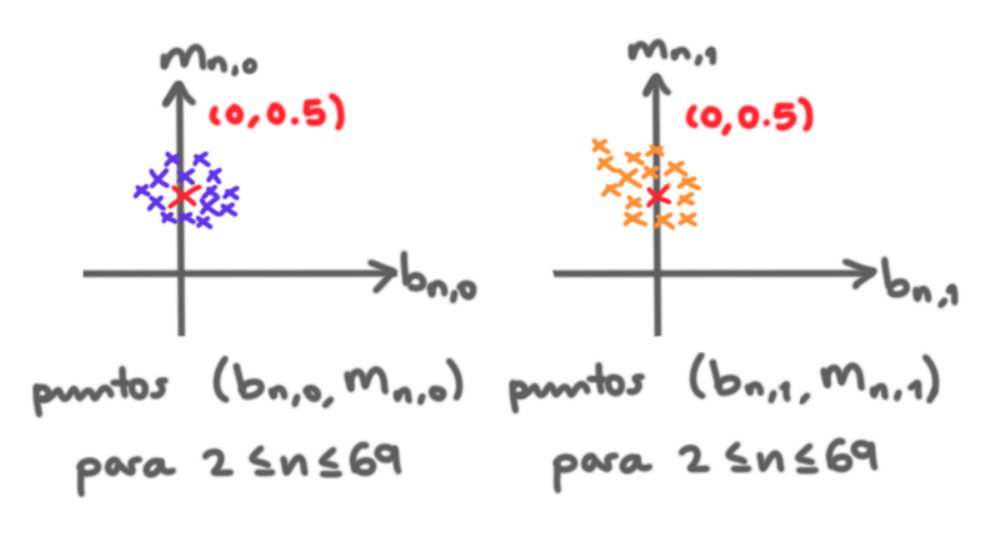 m_{n,0}
(0,0.5)
b_{n,0}
puntos (b_{n,0}, m_{n,0})
para 2 ≤ n ≤ 69
m_{n,1}
(0,0.5)
b_{n,1}
puntos (b_{n,1}, m_{n,1})
para 2 ≤ n ≤ 69